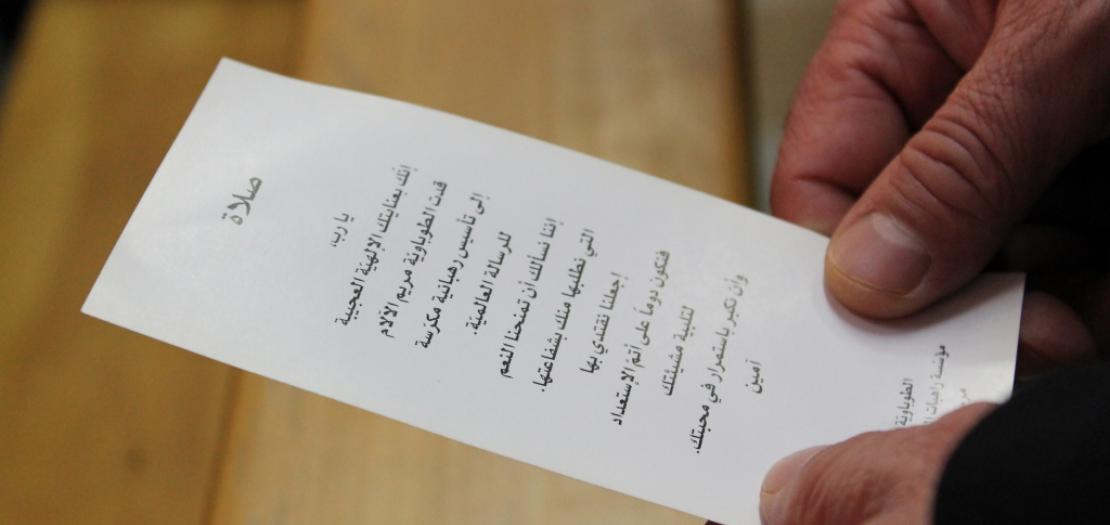 صلاة
يا رب،
إنّك بعنايتك الإلهيّة العجيبة
قدت الطوباويّة مريم الآلام
إلى تأسيس رهبانية مكرّسة
للرسالة العالميّة.
إننا نسألك أن تمنحنا النعم
التي نطلبها منك بشفاعتها.
إجعلنا نقتدي بها
فنكون دوماً على أتم الإستعداد
لتلبية مشيئتك
وأن نكبر باستمرار في محبتك.
آمين
الطوباويّة
مؤسّسة راهبات